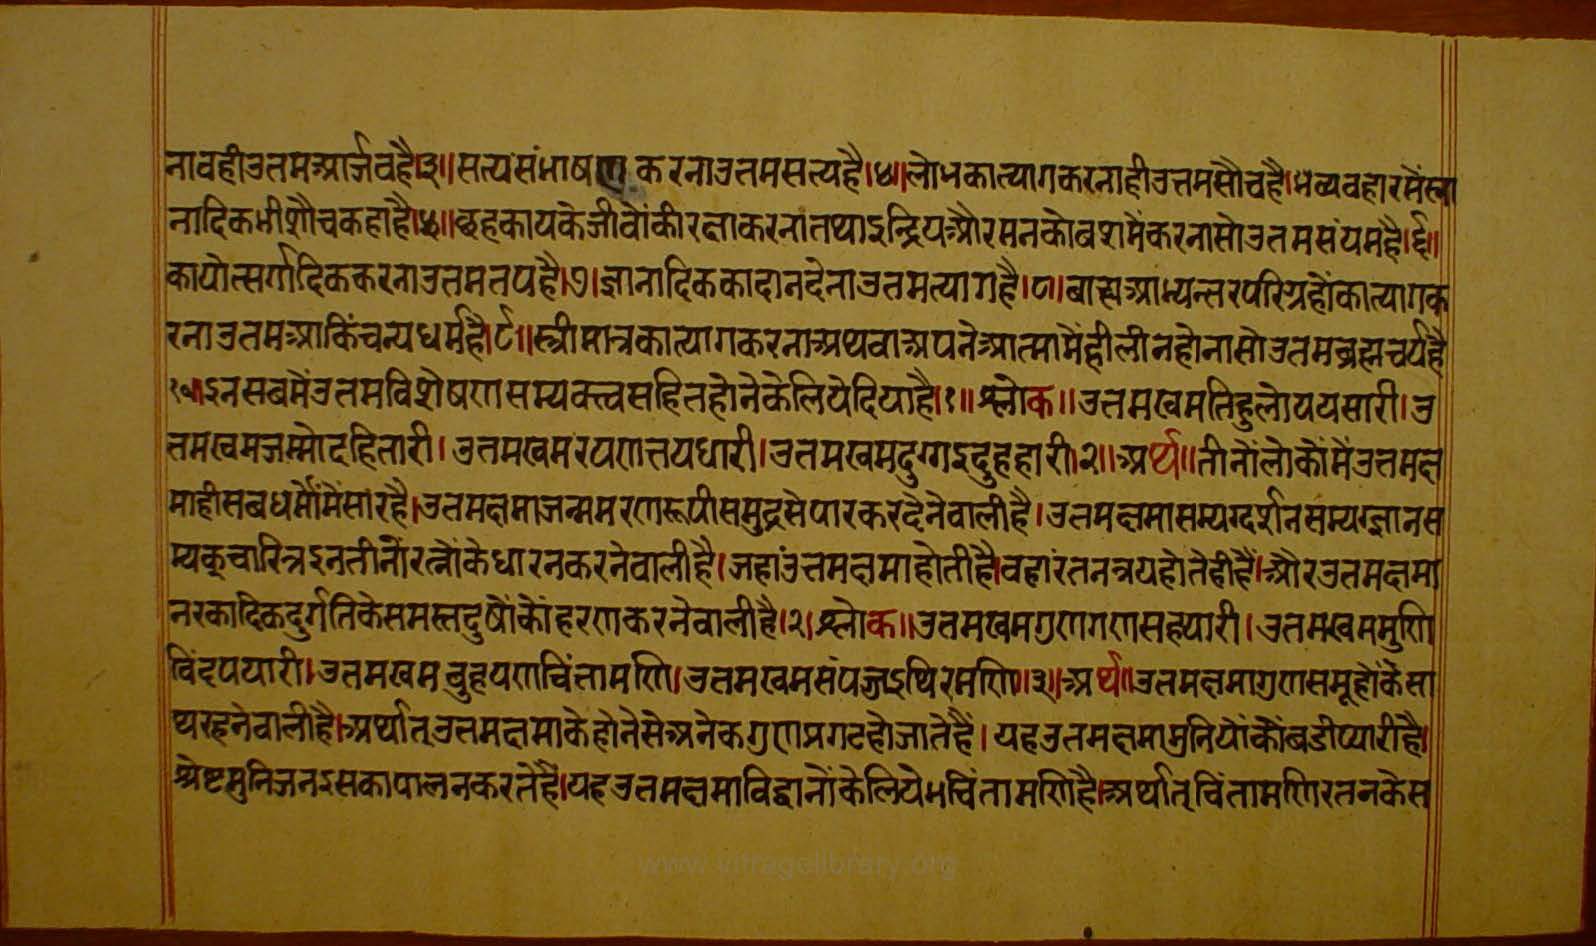 नावहीउतमआर्जवहै।३॥सत्यसंभाषणकरनाउतमसत्यहै।४।लोभकात्यागकरनाहीउत्तमसौचहै।भव्यवहारमेंस्ना
नादिकभीशौचकहाहै।५॥छहकायकेजीवोंकीरक्षाकरनातथाइन्द्रियऔरमनकोबशमेंकरनासोउतमसंयमहै।६॥
कायोत्सर्गादिककरनाउतमतपहै।७।ज्ञानादिककादानदेनाउतमत्यागहै।८।बाह्यआभ्यन्तरपरिग्रहोंकात्यागक
रनाउतमआकिंचन्यधर्महै।९॥स्त्रीमात्रकात्यागकरनाअथवाअपनेआत्मामेंहीलीनहोनासोउतमब्रह्मचर्यहै
१०।इनसबमेंउतमविशेषणसम्यक्त्वसहितहोनेकेलियेदियाहै।१॥श्लोक॥उतमखमतिहुलोययसारी।उ
तमखमजम्मोदहितारी।उतमखमरयणत्तयधारी।उतमखमदुग्गइदुहहारी।२॥अर्थ॥तीनोंलोकोंमेंउत्तमक्ष
माहीसबधर्मोंमेंसारहै।उतमक्षमाजन्ममरणरूपीसमुद्रसेपारकरदेनेवालीहै।उतमक्षमासम्यग्दर्शनसम्यग्ज्ञानस
म्यक्चारित्रइनतीनोंरत्नोंकेधारनकरनेवालीहै।जहांउत्तमक्षमाहोतीहै।वहांरतनत्रयहोतेहीहैं।औरउतमक्षमा
नरकादिकदुर्गतिकेसमस्तदुषोंकोंहरणकरनेवालीहै।२।श्लोक॥उतमखमगुणगणसहयारी।उतमखममुणि
विंदपयारी।उतमखमबुहयणचिंतामणि।उतमखमसंपज्जइथिरमणि॥३।अर्थ॥उतमक्षमागुणसमूहोंकेसा
थरहनेवालीहै।अर्थात्उतमक्षमाकेहोनेसेअनेकगुणप्रगटहोजातेहैं।यहउतमक्षमामुनियोंकोंबडीप्यारीहै।
श्रेष्टमुनिजनइसकापालनकरतेहैं।यहउतमक्षमाविद्वानोंकेलियेभचिंतामणिहै।अर्थात्चिंतामणिरतनकेस
www.vitragelibrary.org